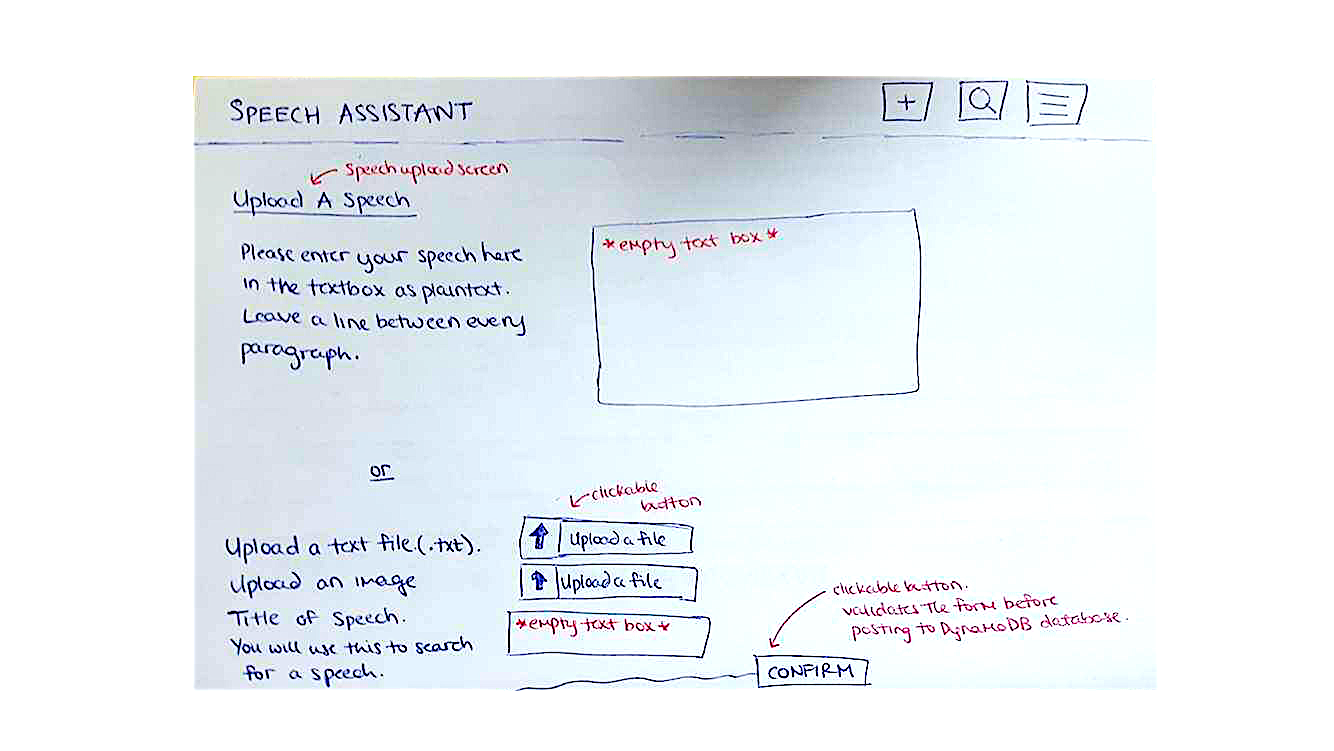 SPEECH ASSISTANT
+
speech upload screen
Upload A Speech
Please enter your speech here
in the textbox as plaintext.
Leave a line between every
paragraph.
*empty text box*
or
clickable
button
Upload a text file.(.txt).
Upload a file
Upload an image
Upload a file
Title of Speech.
You will use this to search
for a speech.
*empty text box*
clickable button.
validates the form before
posting to DynamoDB database.
CONFIRM